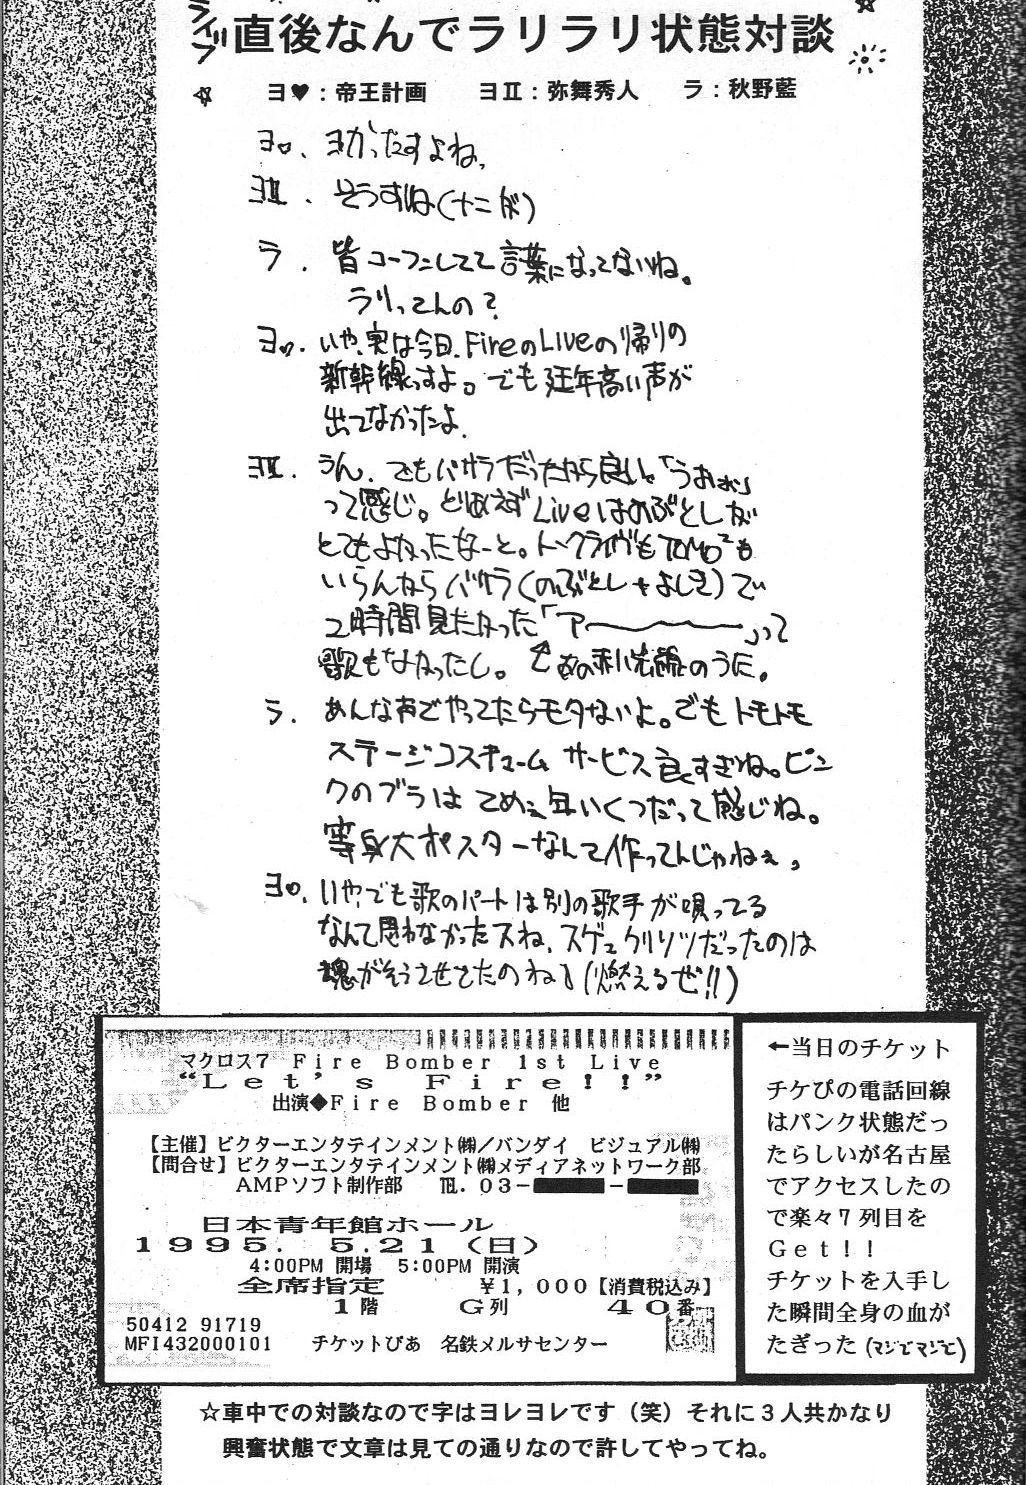 ライブ直後なんでラリラリ状態対談
ヨ♥：帝王計画　ヨⅡ：弥舞秀人　ラ：秋野藍
ヨ♥．ヨかったすよね。
ヨⅡ．そうすね（ナニが）
ラ．皆コーフンしてて言葉になってないね。
ラリってんの？
ヨ♥．いや、実は今日、FireのLiveの帰りの
新幹線っすよ。でも延年高い声が
出てなかったよ．
ヨⅡ．うん．でもバサラだったから良いや「うおぉぉ」
って感じ。とりあえずLiveはのぶとしが
とてもよかったなーと。トークライヴもTOMO²も
いらんからバサラ（のぶとし＋よしき）で
2時間見たかった「アーーーーー」って
歌もなかったし。↖あの 光線のうた。
ラ．あんな声でやってたらモタないよ。でもトモトモ
ステージコスチューム サービス良すぎね。ピン
クのブラはてめェ年いくつだって感じね。
等身大ポスターなんて作ってんじゃねぇ。
ヨ♥．いや？でも歌のパートは別の歌手が唄ってる
なんて思わなかったスね．スゲェクリソツだったのは
魂がそうさせてたのね」（燃えるぜ!!）
マクロス７　Ｆｉｒｅ　Ｂｏｍｂｅｒ　１ｓｔ　Ｌｉｖｅ
“Ｌｅｔ’ｓ　Ｆｉｒｅ！！”
出演◆Ｆｉｒｅ　Ｂｏｍｂｅｒ　他
【主催】ビクターエンタテインメント㈱／バンダイ　ビジュアル㈱
【問合せ】ビクターエンタテインメント㈱メディアネットワーク部
ＡＭＰソフト制作部　℡．０３－　－
日本青年館ホール
１９９５．　５．２１（日）
4:00PM 開場　5:00PM 開演
全席指定　￥１，０００【消費税込み】
１階　Ｇ列　４０番
50412 91719
MFI432000101　チケットぴあ　名鉄メルサセンター
←当日のチケット
チケぴの電話回線
はパンク状態だっ
たらしいが名古屋
でアクセスしたの
で楽々７列目を
Ｇｅｔ！！
チケットを入手し
た瞬間全身の血が
たぎった（マジでマジで）
☆車中での対談なので字はヨレヨレです（笑）それに３人共かなり
興奮状態で文章は見ての通りなので許してやってね。